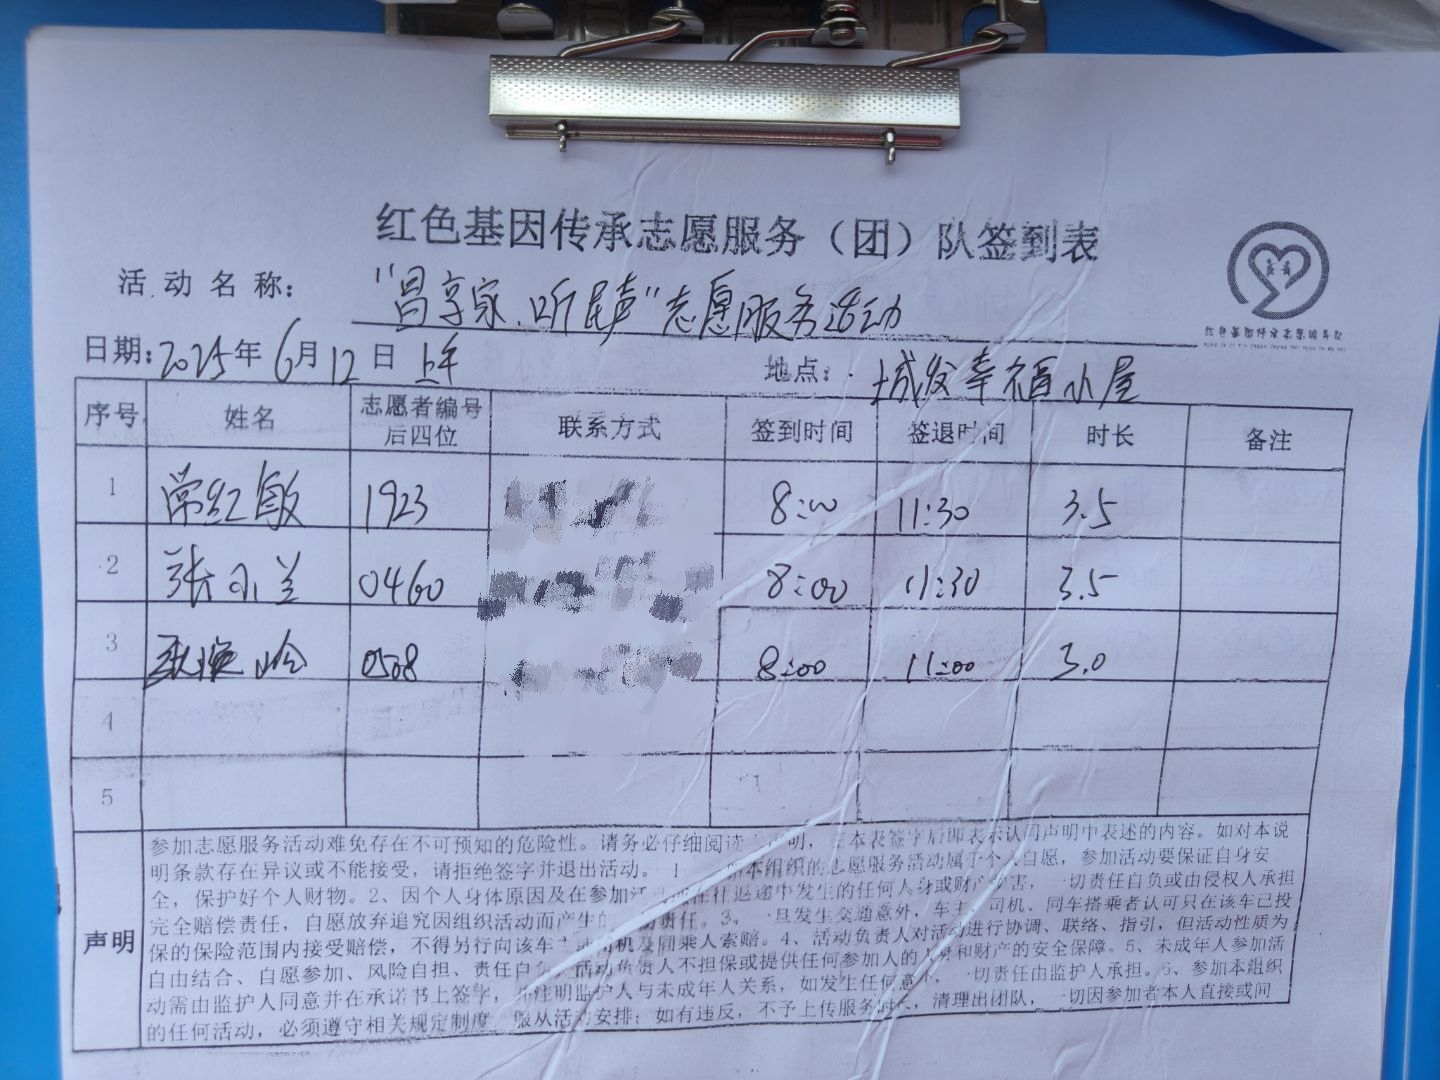 红色基因传承志愿服务（团）队签到表
活动名称： "昌享家.听民声"志愿服务活动
红色基因传承志愿服务队
日期：2025年6月12日 上午 地点： 城发幸福小屋
序号 姓名 志愿者编号后四位 联系方式 签到时间 签退时间 时长 备注
1 常红敏 1923 8:00 11:30 3.5
2 张小兰 0460 8:00 11:30 3.5
3 0508 8:00 11:00 3.0
4
5
声明
参加志愿服务活动难免存在不可预知的危险性。请务必仔细阅读 声明，在本表签字后即表示认同声明中表述的内容。如对本说
明条款存在异议或不能接受，请拒绝签字并退出活动。1 本组织的志愿服务活动属于个人自愿，参加活动要保证自身安
全，保护好个人财物。2、因个人身体原因及在参加活 往返途中发生的任何人身或财产 害，一切责任自负或由侵权人承担
完全赔偿责任，自愿放弃追究因组织活动而产生的 责任。3、一旦发生交通意外，车主、司机、同车搭乘者认可只在该车已投
保的保险范围内接受赔偿，不得另行向该车主或司机及同乘人索赔。4、活动负责人对活动进行协调、联络、指引，但活动性质为
自由结合、自愿参加、风险自担、责任自负，活动负责人不担保或提供任何参加人的人身和财产的安全保障。5、未成年人参加活
动需由监护人同意并在承诺书上签字，并注明监护人与未成年人关系，如发生任何意外，一切责任由监护人承担。6、参加本组织
的任何活动，必须遵守相关规定制度，服从活动安排；如有违反，不予上传服务时长，清理出团队，一切因参加者本人直接或间